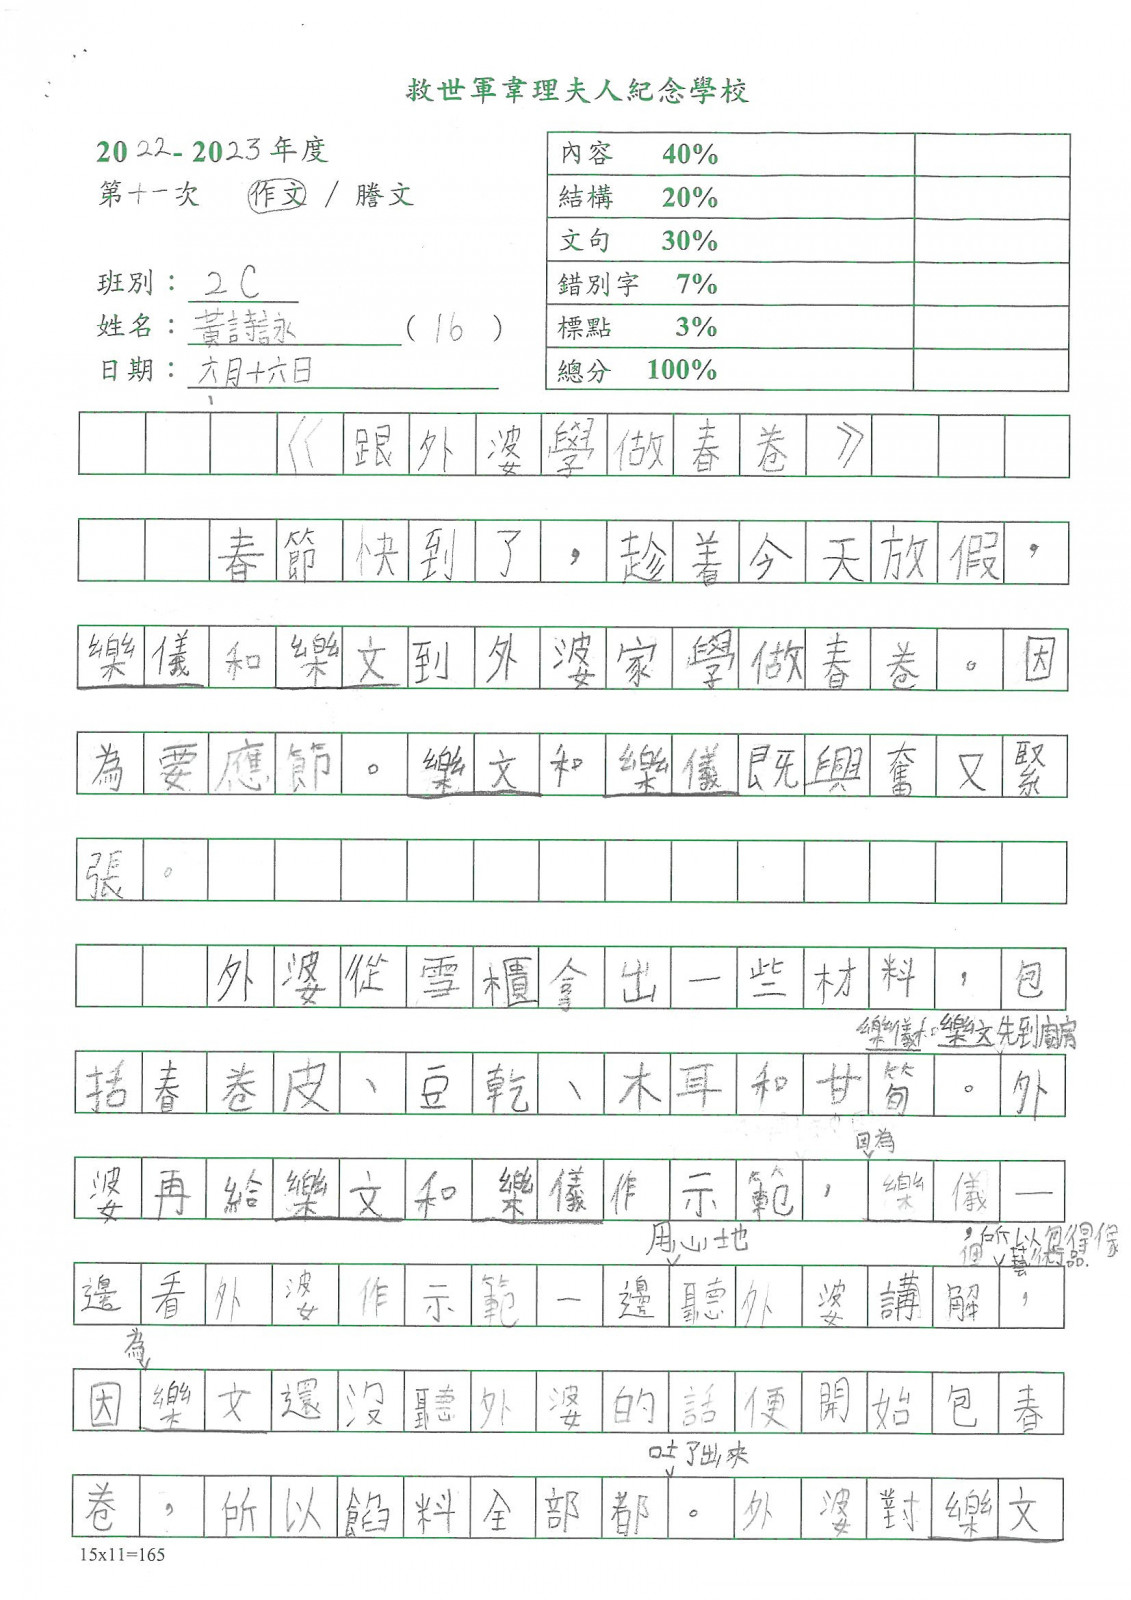 救世軍韋理夫人紀念學校
2022-2023年度
第十一次 作文 / 謄文
班別：2C
姓名：黃詩詠 (16)
日期：六月十六日
內容 40%
結構 20%
文句 30%
錯別字 7%
標點 3%
總分 100%
《跟外婆學做春卷》
春節快到了，趁着今天放假，
樂儀和樂文到外婆家學做春卷。因
為要應節。樂文和樂儀既興奮又緊
張。
外婆從雪櫃拿出一些材料，包
樂儀和樂文先到廚房
括春卷皮、豆乾、木耳和甘筍。外
因為
婆再給樂文和樂儀作示範，樂儀一
用心地
，所以包得像
個藝術品.
邊看外婆作示範一邊聽外婆講解，
為
因樂文還沒聽外婆的話便開始包春
吐了出來
卷，所以餡料全部都。外婆對樂文
15x11=165